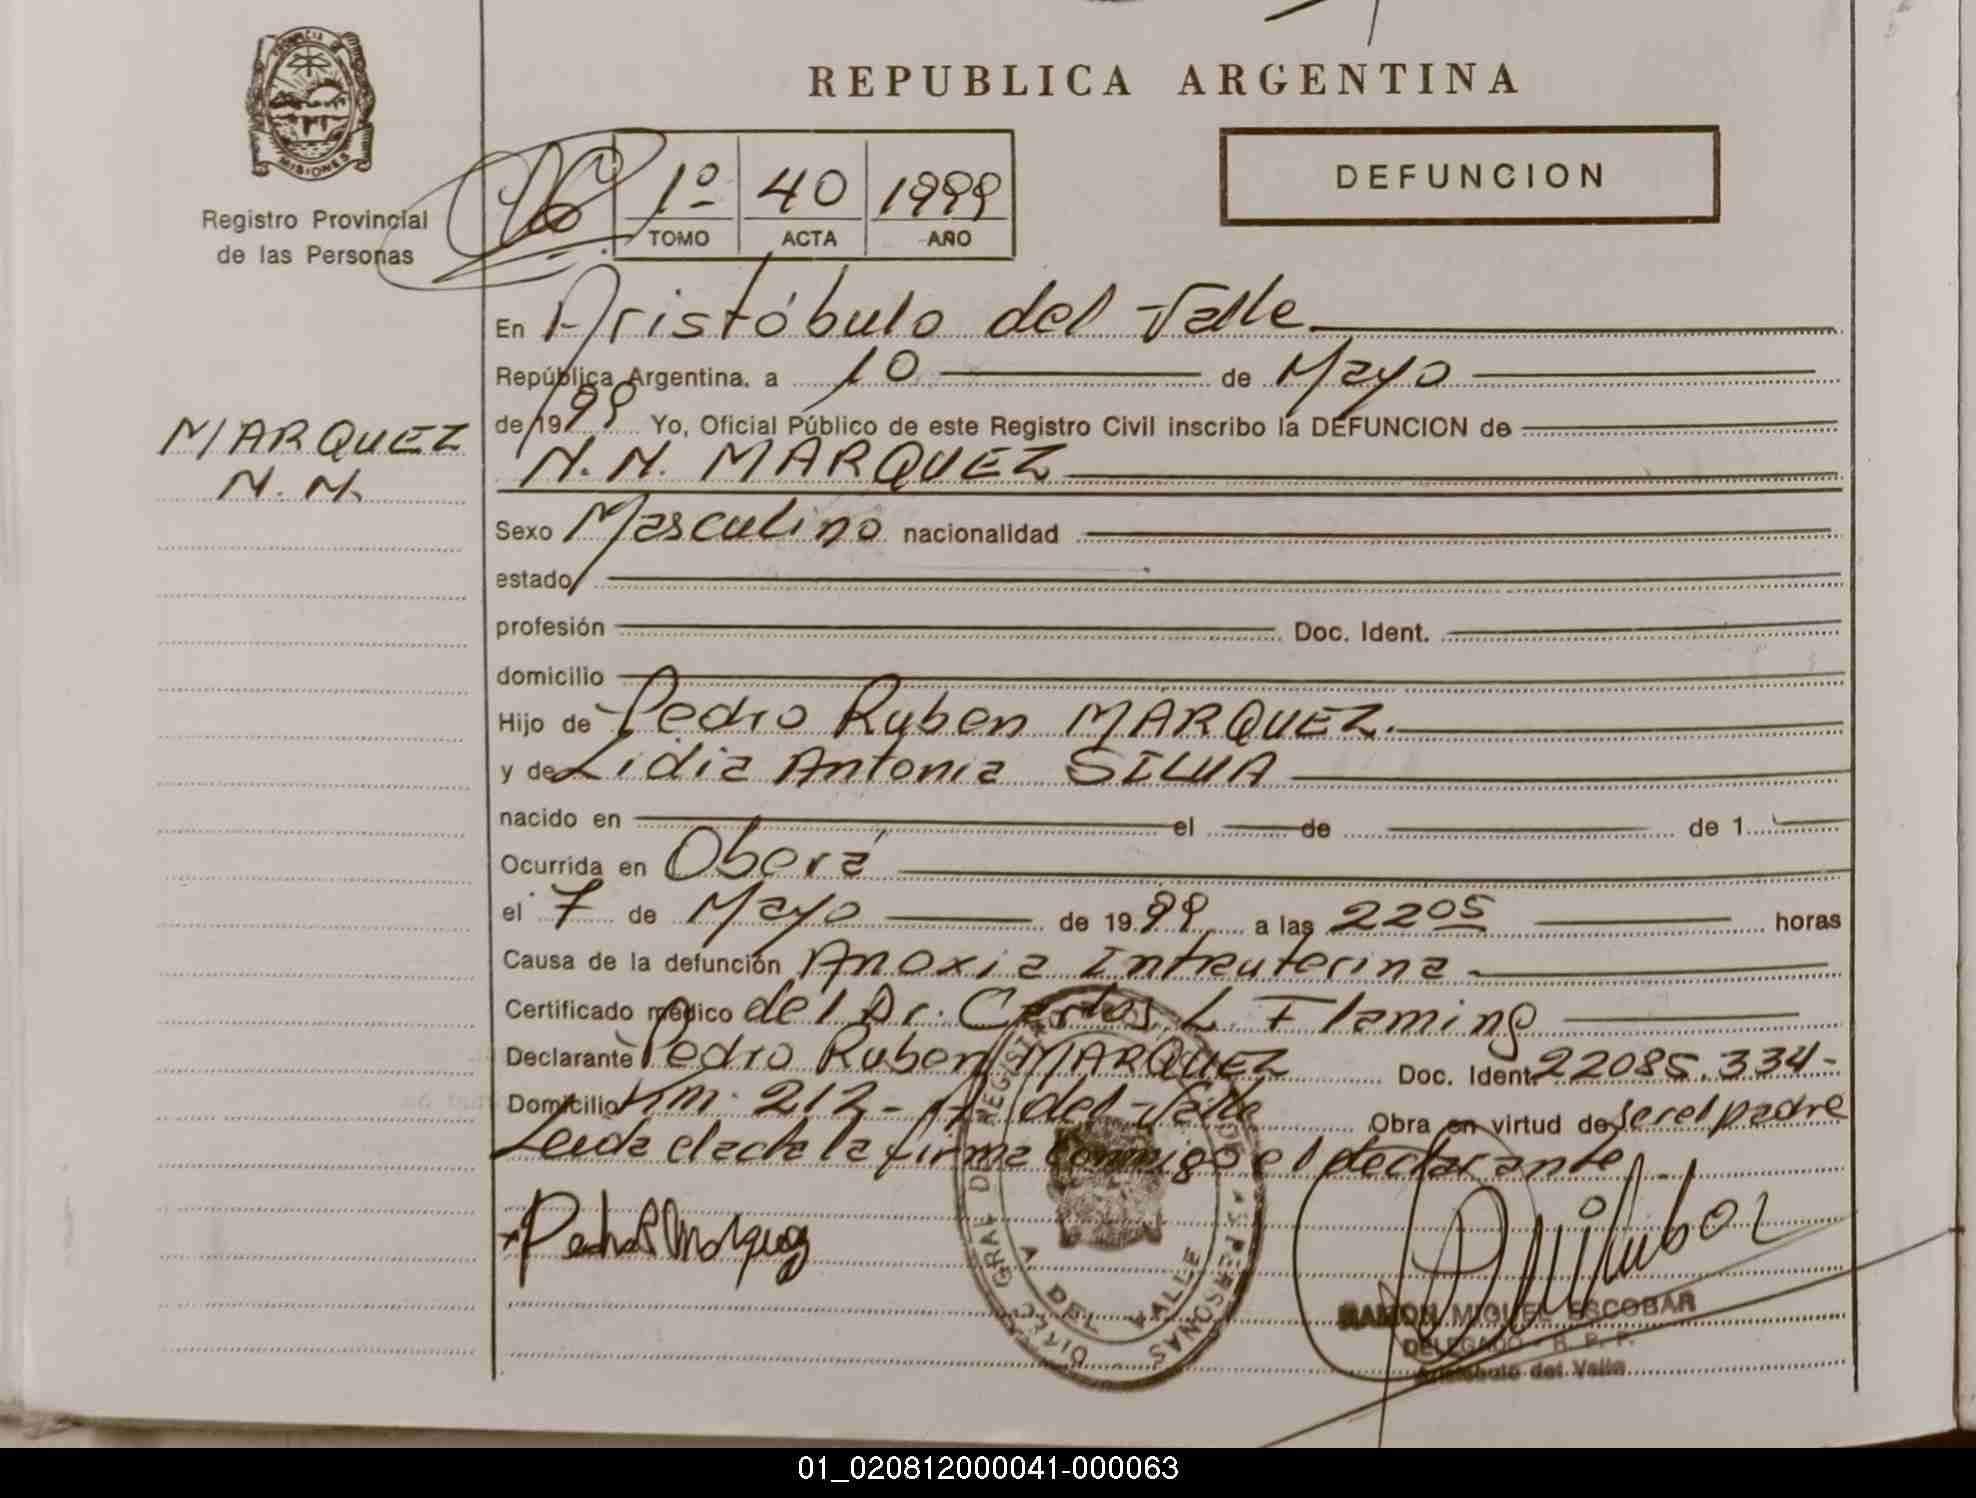 PROVINCIA DE
MISIONES
Registro Provincial
de las Personas
REPUBLICA ARGENTINA
1º 40 1999
TOMO ACTA AÑO
DEFUNCION
MARQUEZ
N. N.
En Aristóbulo del Valle
República Argentina, a 10 de Mayo
de 1999 Yo, Oficial Público de este Registro Civil inscribo la DEFUNCION de
N. N. MARQUEZ
Sexo Masculino nacionalidad
estado
profesión Doc. Ident.
domicilio
Hijo de Pedro Ruben MARQUEZ.
y de Lidia Antonia SILVA
nacido en el de de 1
Ocurrida en Oberá
el 7 de Mayo de 1999 a las 22 05 horas
Causa de la defunción Anoxia Intrauterina
Certificado médico del Dr. Carlos L. Flaming
Declarante Pedro Ruben MARQUEZ Doc. Ident. 22085.334-
Domicilio Km. 212 - A. del Valle Obra en virtud de ser el padre
Leida el acta la firma conmigo el declarante
Pedro R Marquez
DIREC. GRAL DE REGISTRO DE PERSONAS
A DEL VALLE
RAMON MIGUEL ESCOBAR
DELEGADO - R. P. P.
Aristobulo del Valle
01_020812000041-000063